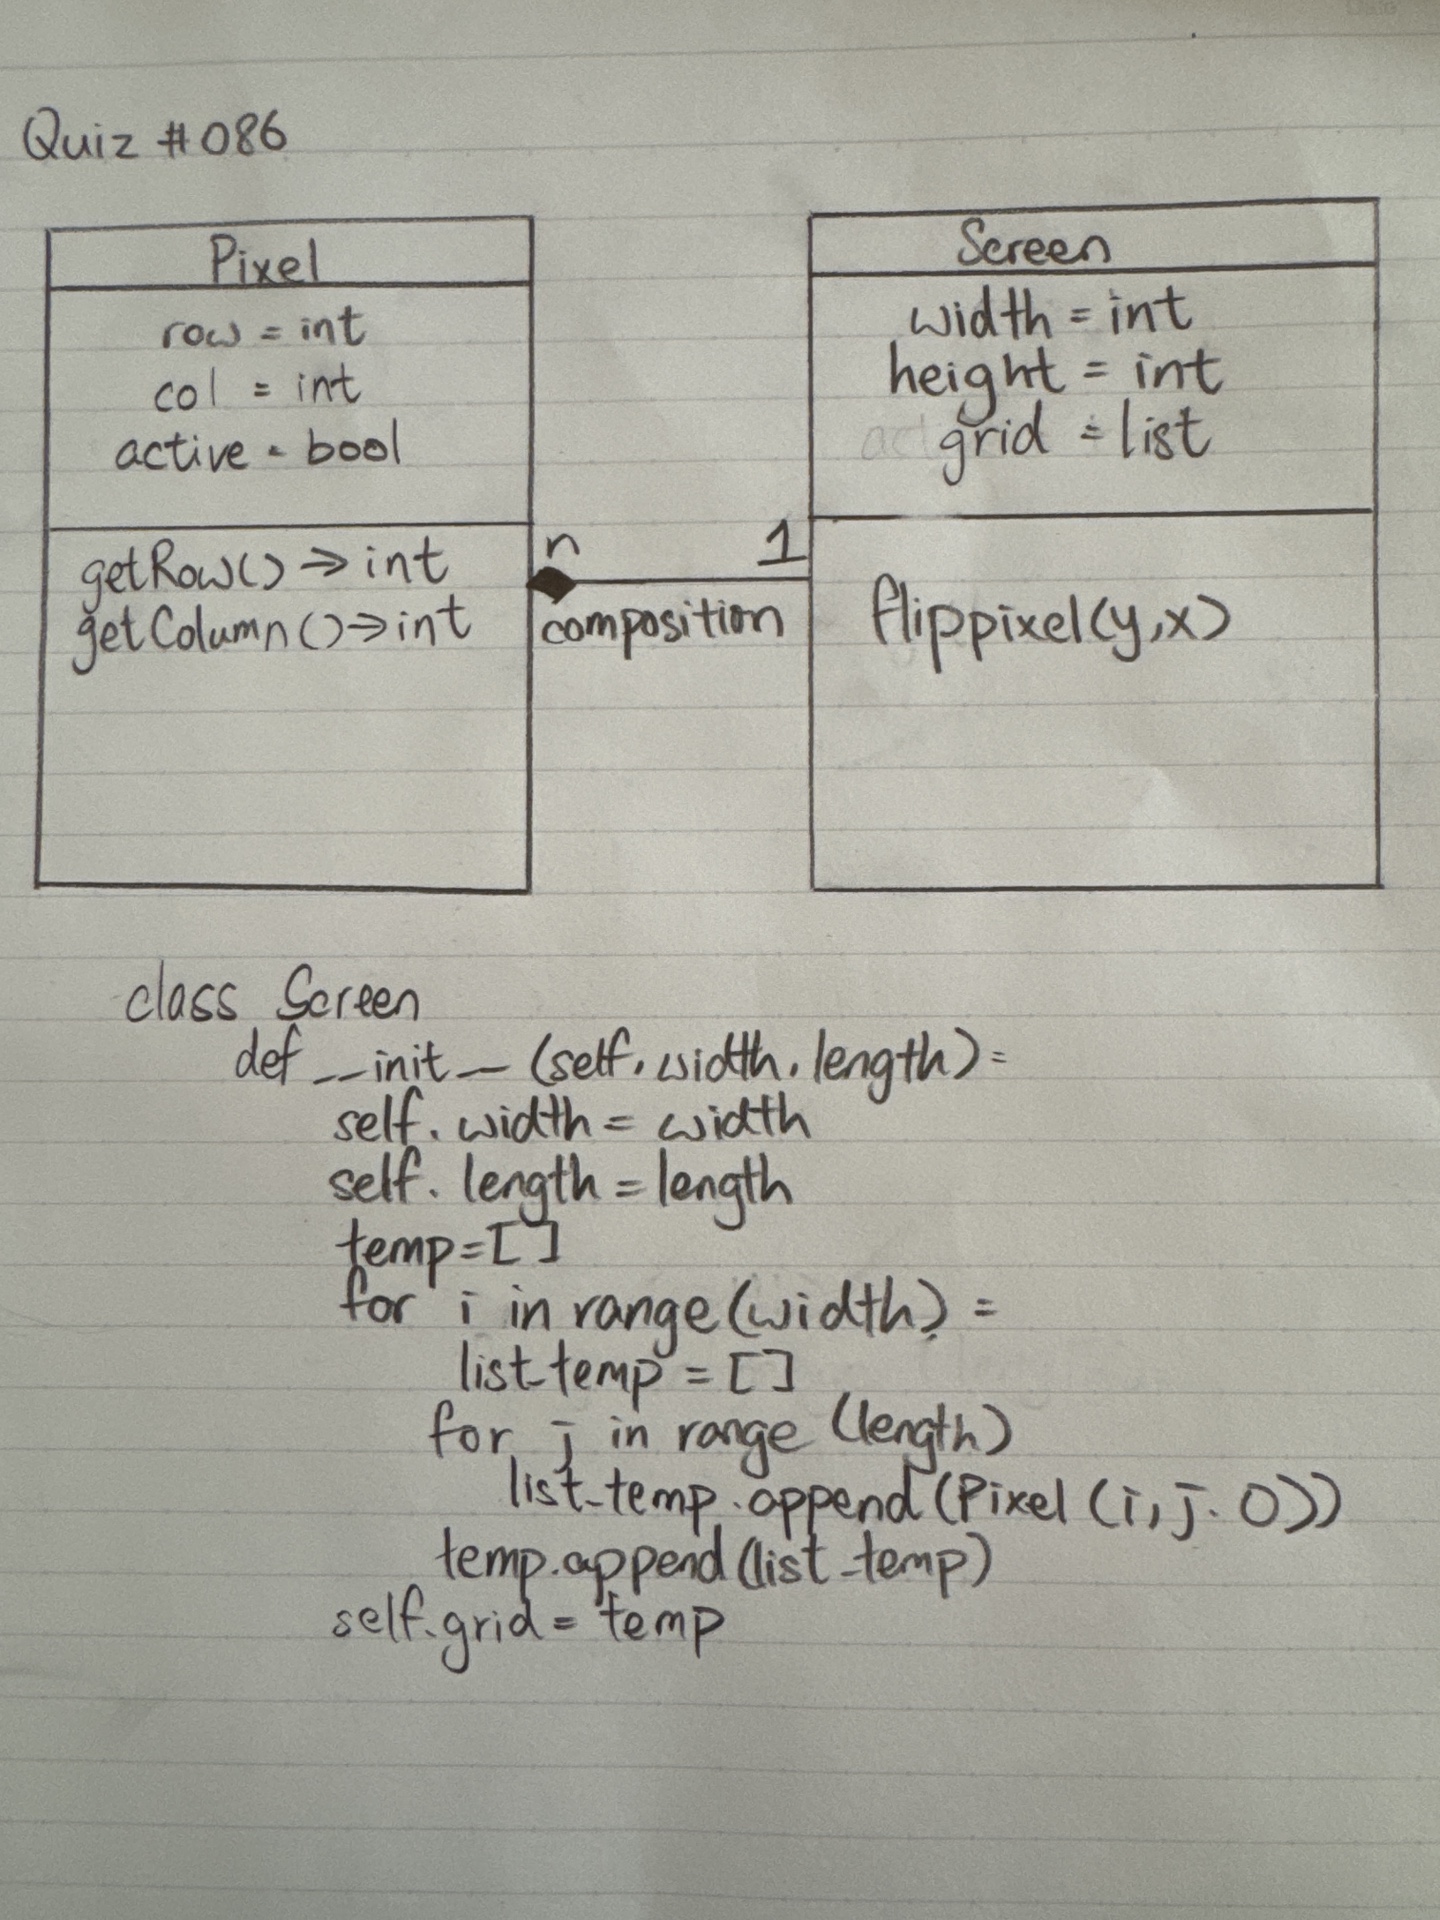 Quiz #086
Pixel
row = int
col = int
active = bool
getRow() → int
getColumn() → int
n
1
composition
Screen
width = int
height = int
grid = list
flippixel(y,x)
class Screen
def __init__ (self, width, length) =
self. width = width
self. length = length
temp = []
for i in range (width) =
list_temp = []
for j in range (length)
list_temp.append (Pixel (i, j. 0))
temp.append (list_temp)
self.grid = temp